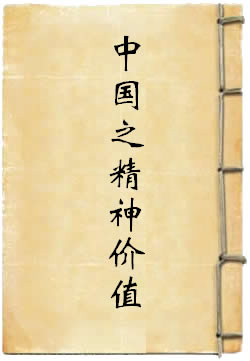 中国之精神价值